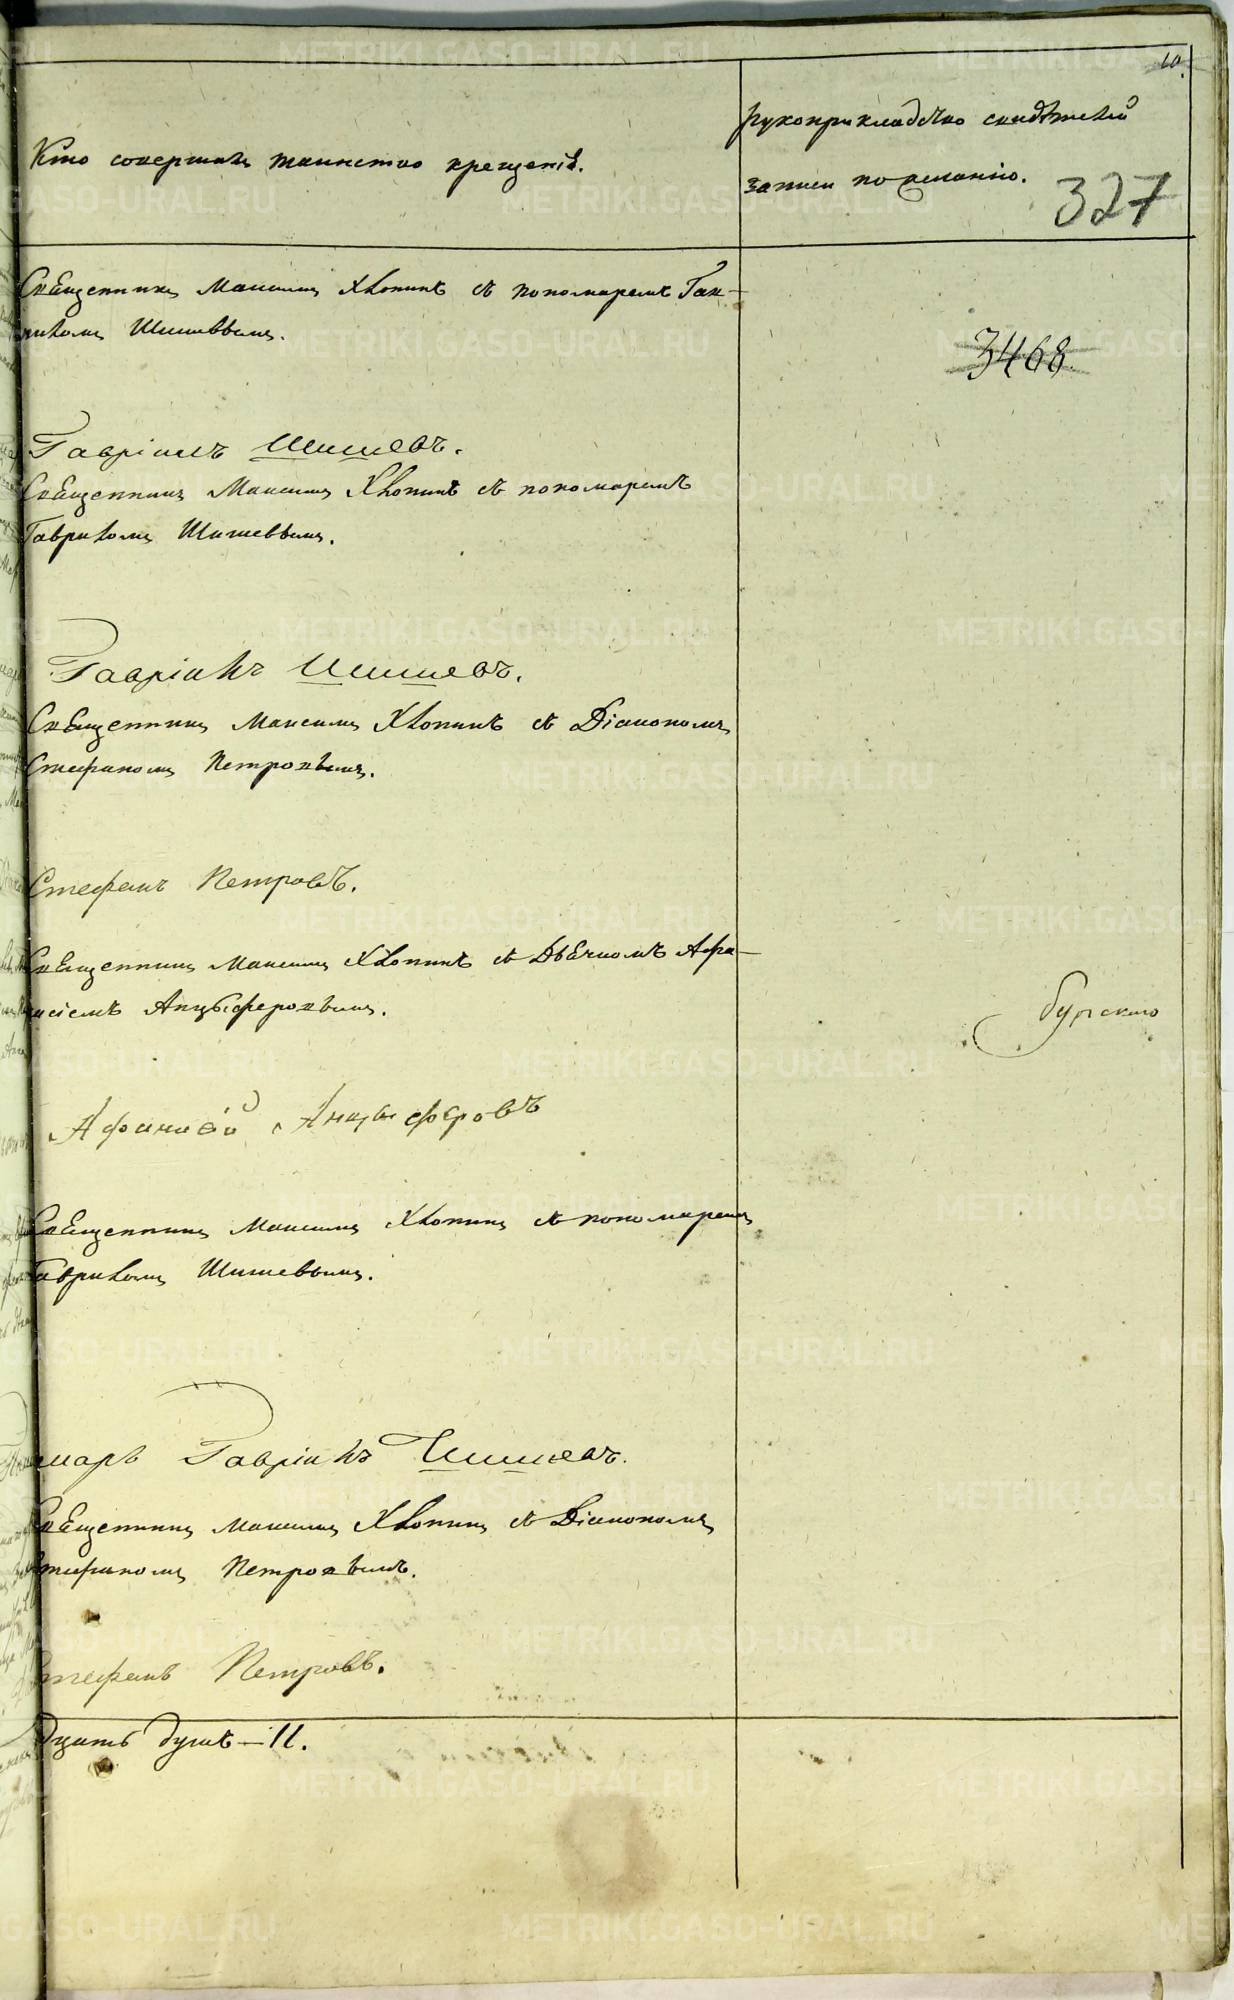 10.
Кто совершалъ таинство крещенія.
рукоприкладство свидѣтелей
записи по желанію.
327
Священникъ Максимъ Хлопинъ съ пономаремъ Гав-
риломъ Шишевымъ.
3468
Гавріилъ Шишевъ.
Священникъ Максимъ Хлопинъ съ пономаремъ
Гавриломъ Шишевымъ.
Гавріилъ Шишевъ.
Священникъ Максимъ Хлопинъ съ Діакономъ
Стефаномъ Петровымъ.
Стефанъ Петровъ.
Священникъ Максимъ Хлопинъ съ Дьячкомъ Афа-
насіемъ Анцыферовымъ.
Афанасій Анцыферовъ
Священникъ Максимъ Хлопинъ съ пономаремъ
Гавриломъ Шишевымъ.
марь Гавріилъ Шишевъ.
Священникъ Максимъ Хлопинъ съ Діакономъ
Стефаномъ Петровымъ.
Стефанъ Петровъ.
дцать душъ — 11.
METRIKI.GASO-URAL.RU